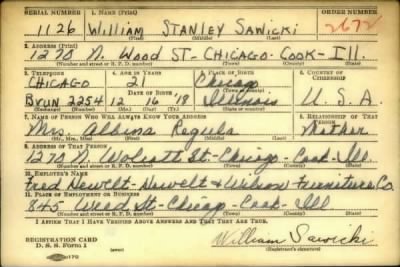 SERIAL NUMBER 1. NAME (Print) ORDER NUMBER
1126 William STANLEY SAWICKI 2672
(First) (Middle) (Last)
2. ADDRESS (Print)
1270 N. WOOD ST - CHICAGO - COOK - ILL.
(Number and street or R. F. D. number) (Town) (County) (State)
3. TELEPHONE 4. AGE IN YEARS 5. PLACE OF BIRTH 6. COUNTRY OF CITIZENSHIP
CHICAGO 21 Chicago
DATE OF BIRTH (Town or county)
BRUN 2254 12 16 '18 Illinois U.S.A.
(Exchange) (Number) (Mo.) (Day) (Yr.) (State or country)
7. NAME OF PERSON WHO WILL ALWAYS KNOW YOUR ADDRESS 8. RELATIONSHIP OF THAT PERSON
Mrs. Albina Regula Mother
(Mr., Mrs., Miss) (First) (Middle) (Last)
9. ADDRESS OF THAT PERSON
1270 N Wolcott St - Chicago - Cook - Ill.
(Number and street or R. F. D. number) (Town) (County) (State)
10. EMPLOYER'S NAME
Fred Hewelt - Hewelt & Wilson Furniture Co.
11. PLACE OF EMPLOYMENT OR BUSINESS
845 Weed St - Chicago - Cook - Ill
(Number and street or R. F. D. number) (Town) (County) (State)
I AFFIRM THAT I HAVE VERIFIED ABOVE ANSWERS AND THAT THEY ARE TRUE.
REGISTRATION CARD
D. S. S. Form 1 William Sawicki
(Registrant's signature)